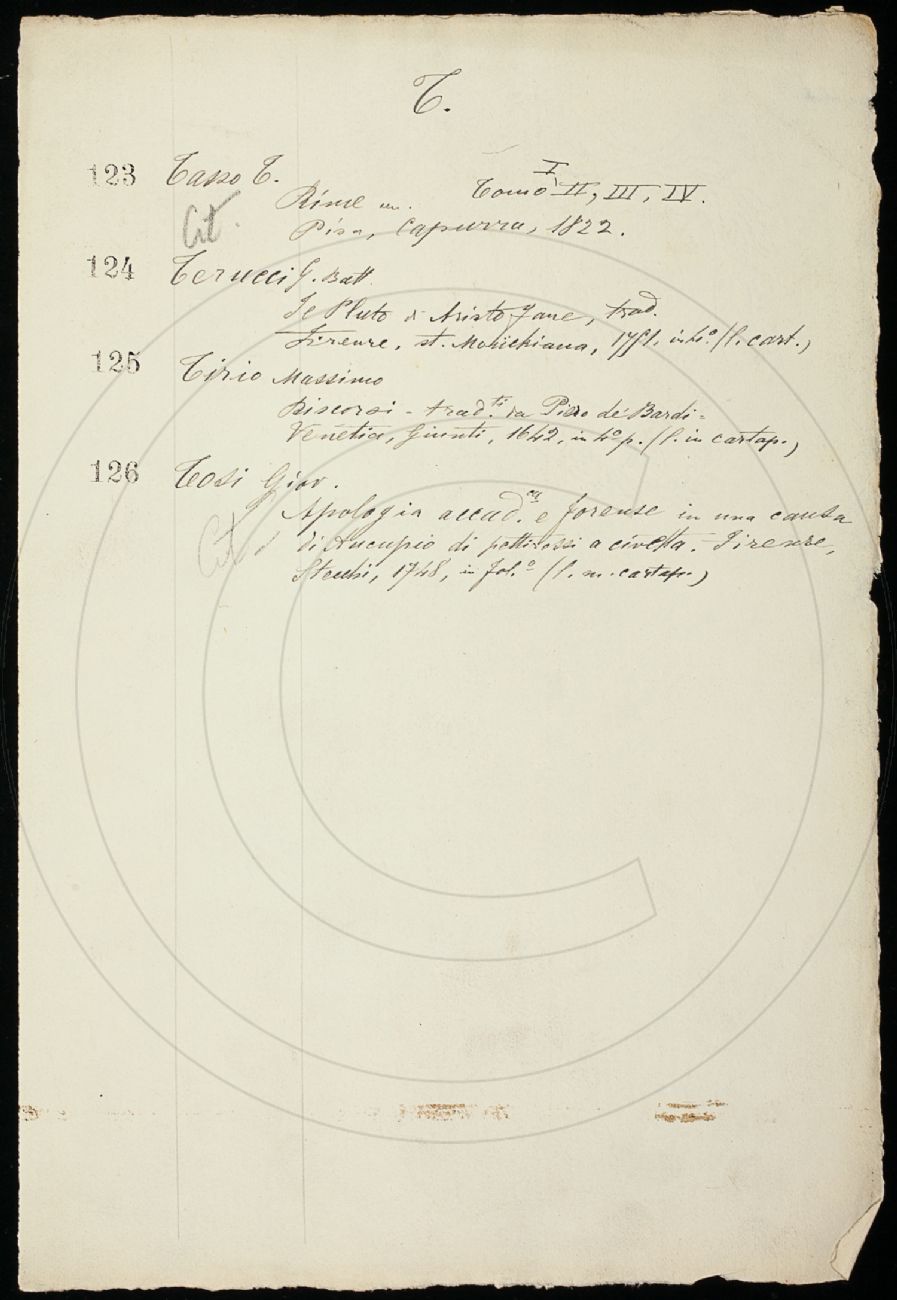 T.
123 Tasso T.
Rime Tomo I, II, III, IV.
Cit.
Pisa, Capurro, 1822.
124 Terucci G. Batt.
Il Pluto di Aristofane, trad.
Firenze, st. Mouckiana, 1751. in 4.º (l. cart.)
125 Tirio Massimo
Discorsi - trad.ti da Piero de' Bardi -
Venetia, Giunti, 1642, in 4º p. (l. in cartap.)
126 Tosi Giov.
Apologia accad.ca e forense in una causa
Cit.
di Aucupio di pettirossi a civetta. - Firenze,
Stecchi, 1748, in fol.º (l. m. cartap.)